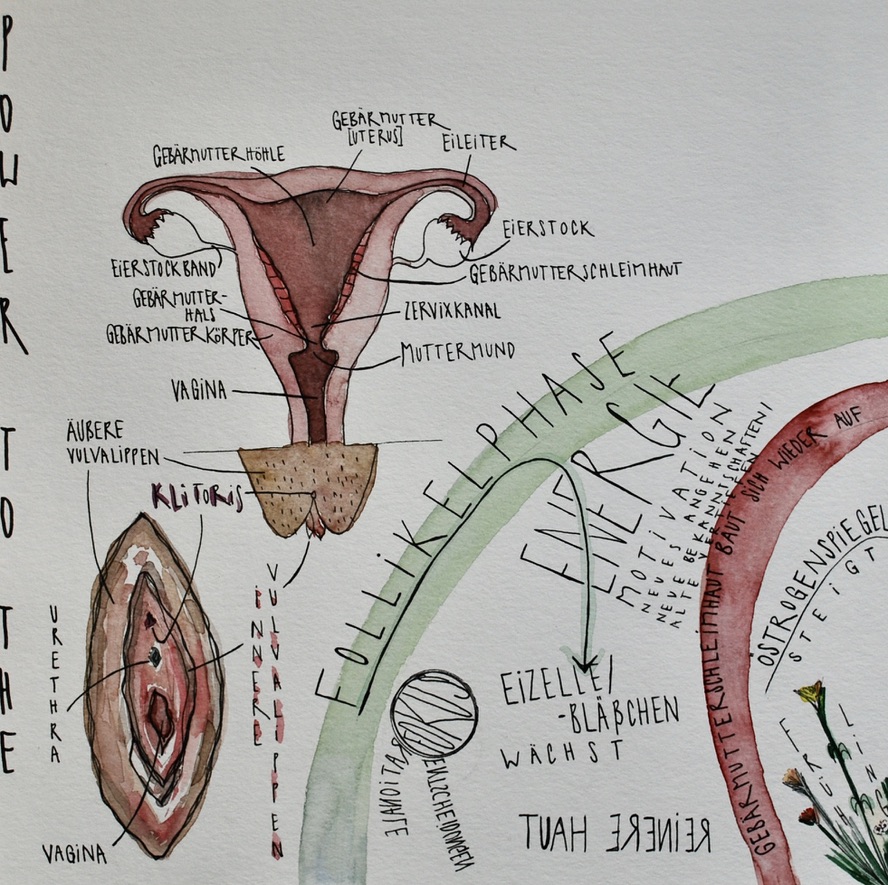 POWER TO THE
GEBÄRMUTTER
[UTERUS]
EILEITER
GEBÄRMUTTERHÖHLE
EIERSTOCK
EIERSTOCKBAND
GEBÄRMUTTERSCHLEIMHAUT
GEBÄRMUTTER-
HALS
ZERVIXKANAL
GEBÄRMUTTERKÖRPER
MUTTERMUND
VAGINA
ÄUßERE
VULVALIPPEN
KLITORIS
URETHRA
INNERE
VULVALIPPEN
VAGINA
FOLLIKELPHASE
ENERGIE
ENERGIE
MOTIVATION
NEUES ANGEHEN
NEUE BEKANNTSCHAFTEN/
ALTE VERTIEFEN
GEBÄRMUTTERSCHLEIMHAUT BAUT SICH WIEDER AUF
ÖSTROGENSPIEGEL
STEIGT
EIZELLE/
-BLÄßCHEN
WÄCHST
RATIONALE
ENTSCHEIDUNGEN
REINERE HAUT